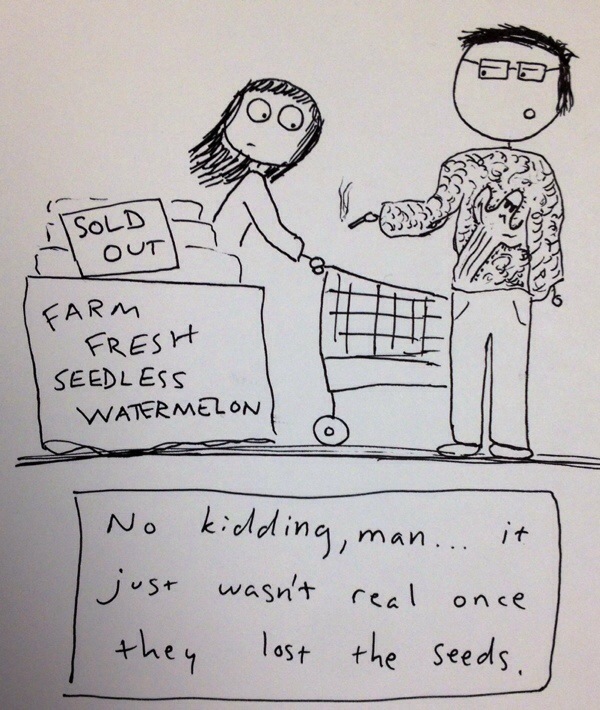 SOLD
OUT
FARM
FRESH
SEEDLESS
WATERMELON
No kidding, man... it
just wasn't real once
they lost the seeds.